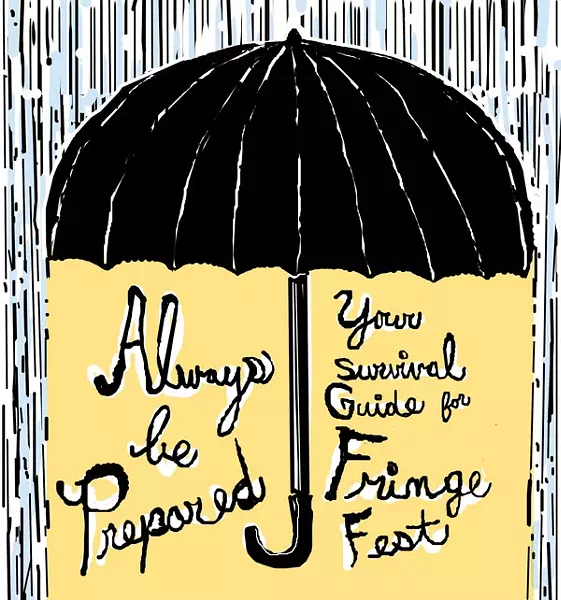 Always
be
Prepared
Your
Survival
Guide for
Fringe
Fest